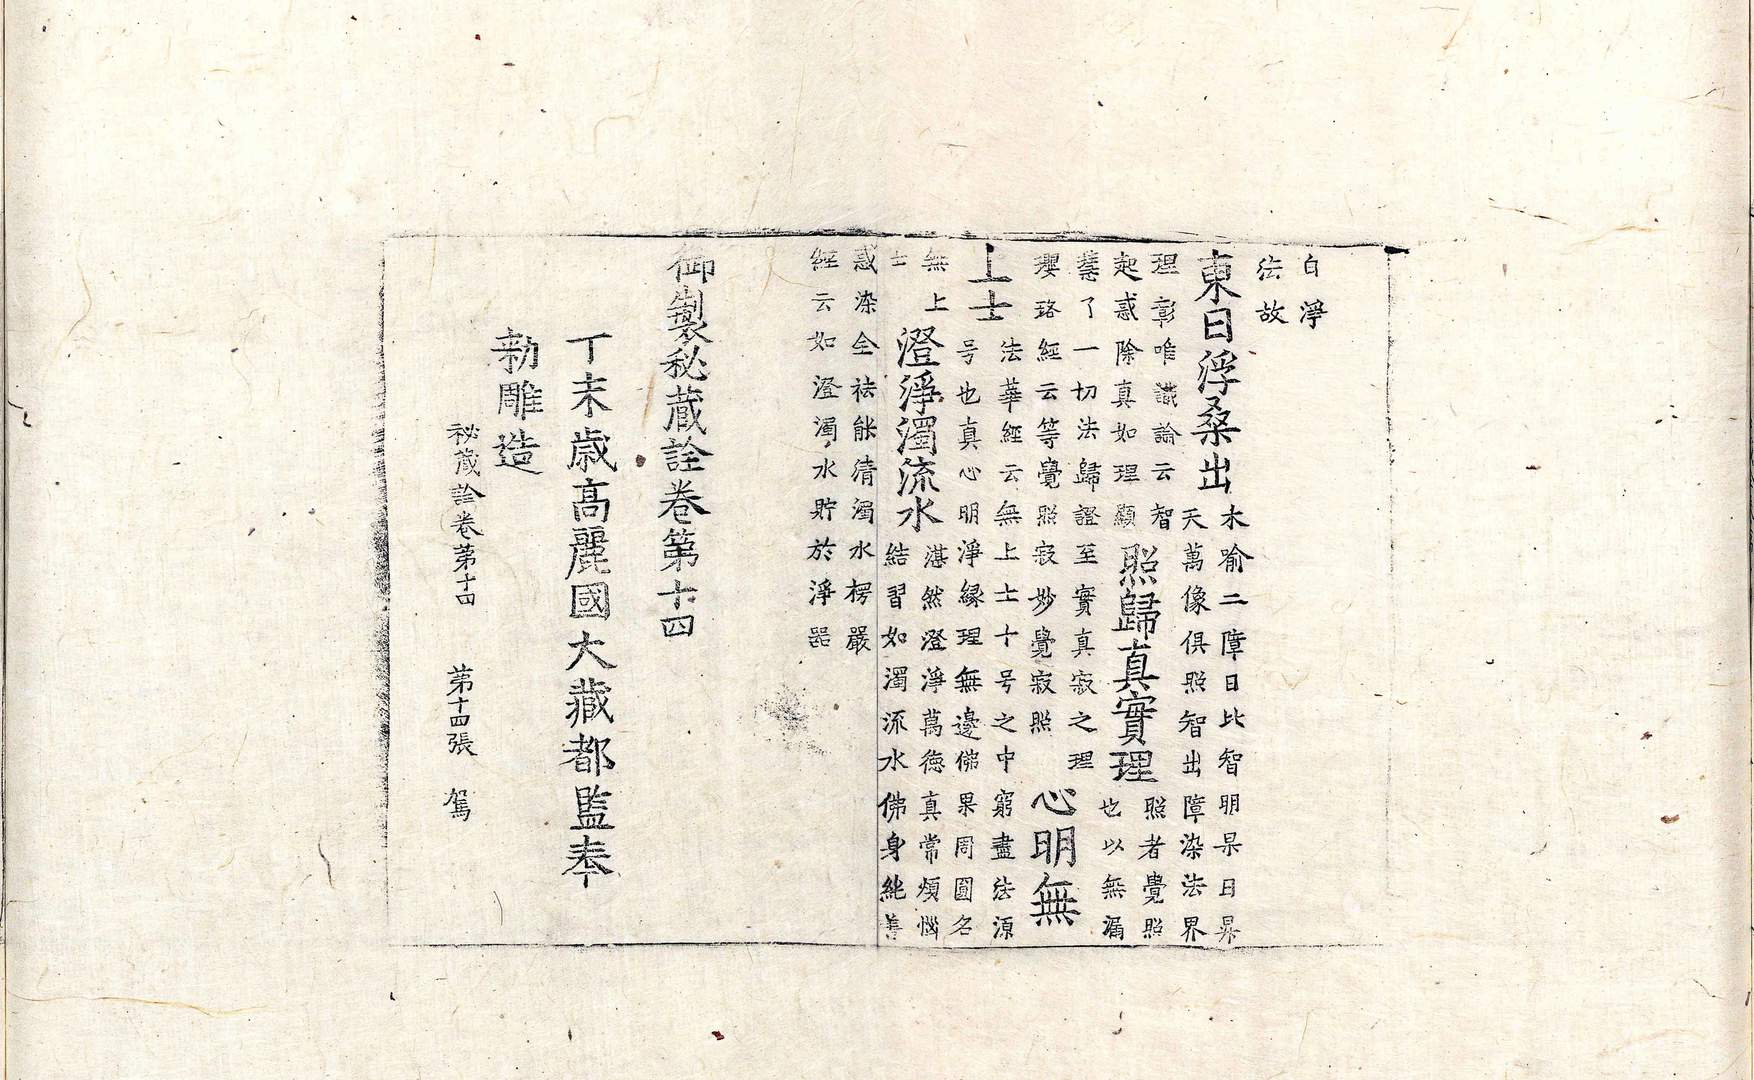 白淨
法故
東日浮桑出
木喻二障日比智明杲日昇
天萬像俱照智出障染法界
理彰唯識論云智
起惑除真如理顯
照歸真實理
照者覺照
也以無漏
慧了一切法歸證至實真寂之理
瓔珞經云等覺照寂妙覺寂照
心明無
上士
法華經云無上士十号之中窮盡法源
号也真心明淨縁理無邊佛果周圓名
無上
士
澄淨濁流水
湛然澄淨萬德真常煩惱
結習如濁流水佛身純善
惑染全祛能清濁水楞嚴
經云如澄濁水貯於淨器
御製秘藏詮卷第十四
丁未歲高麗國大藏都監奉
勅雕造
秘藏詮卷第十四 第十四張 駕